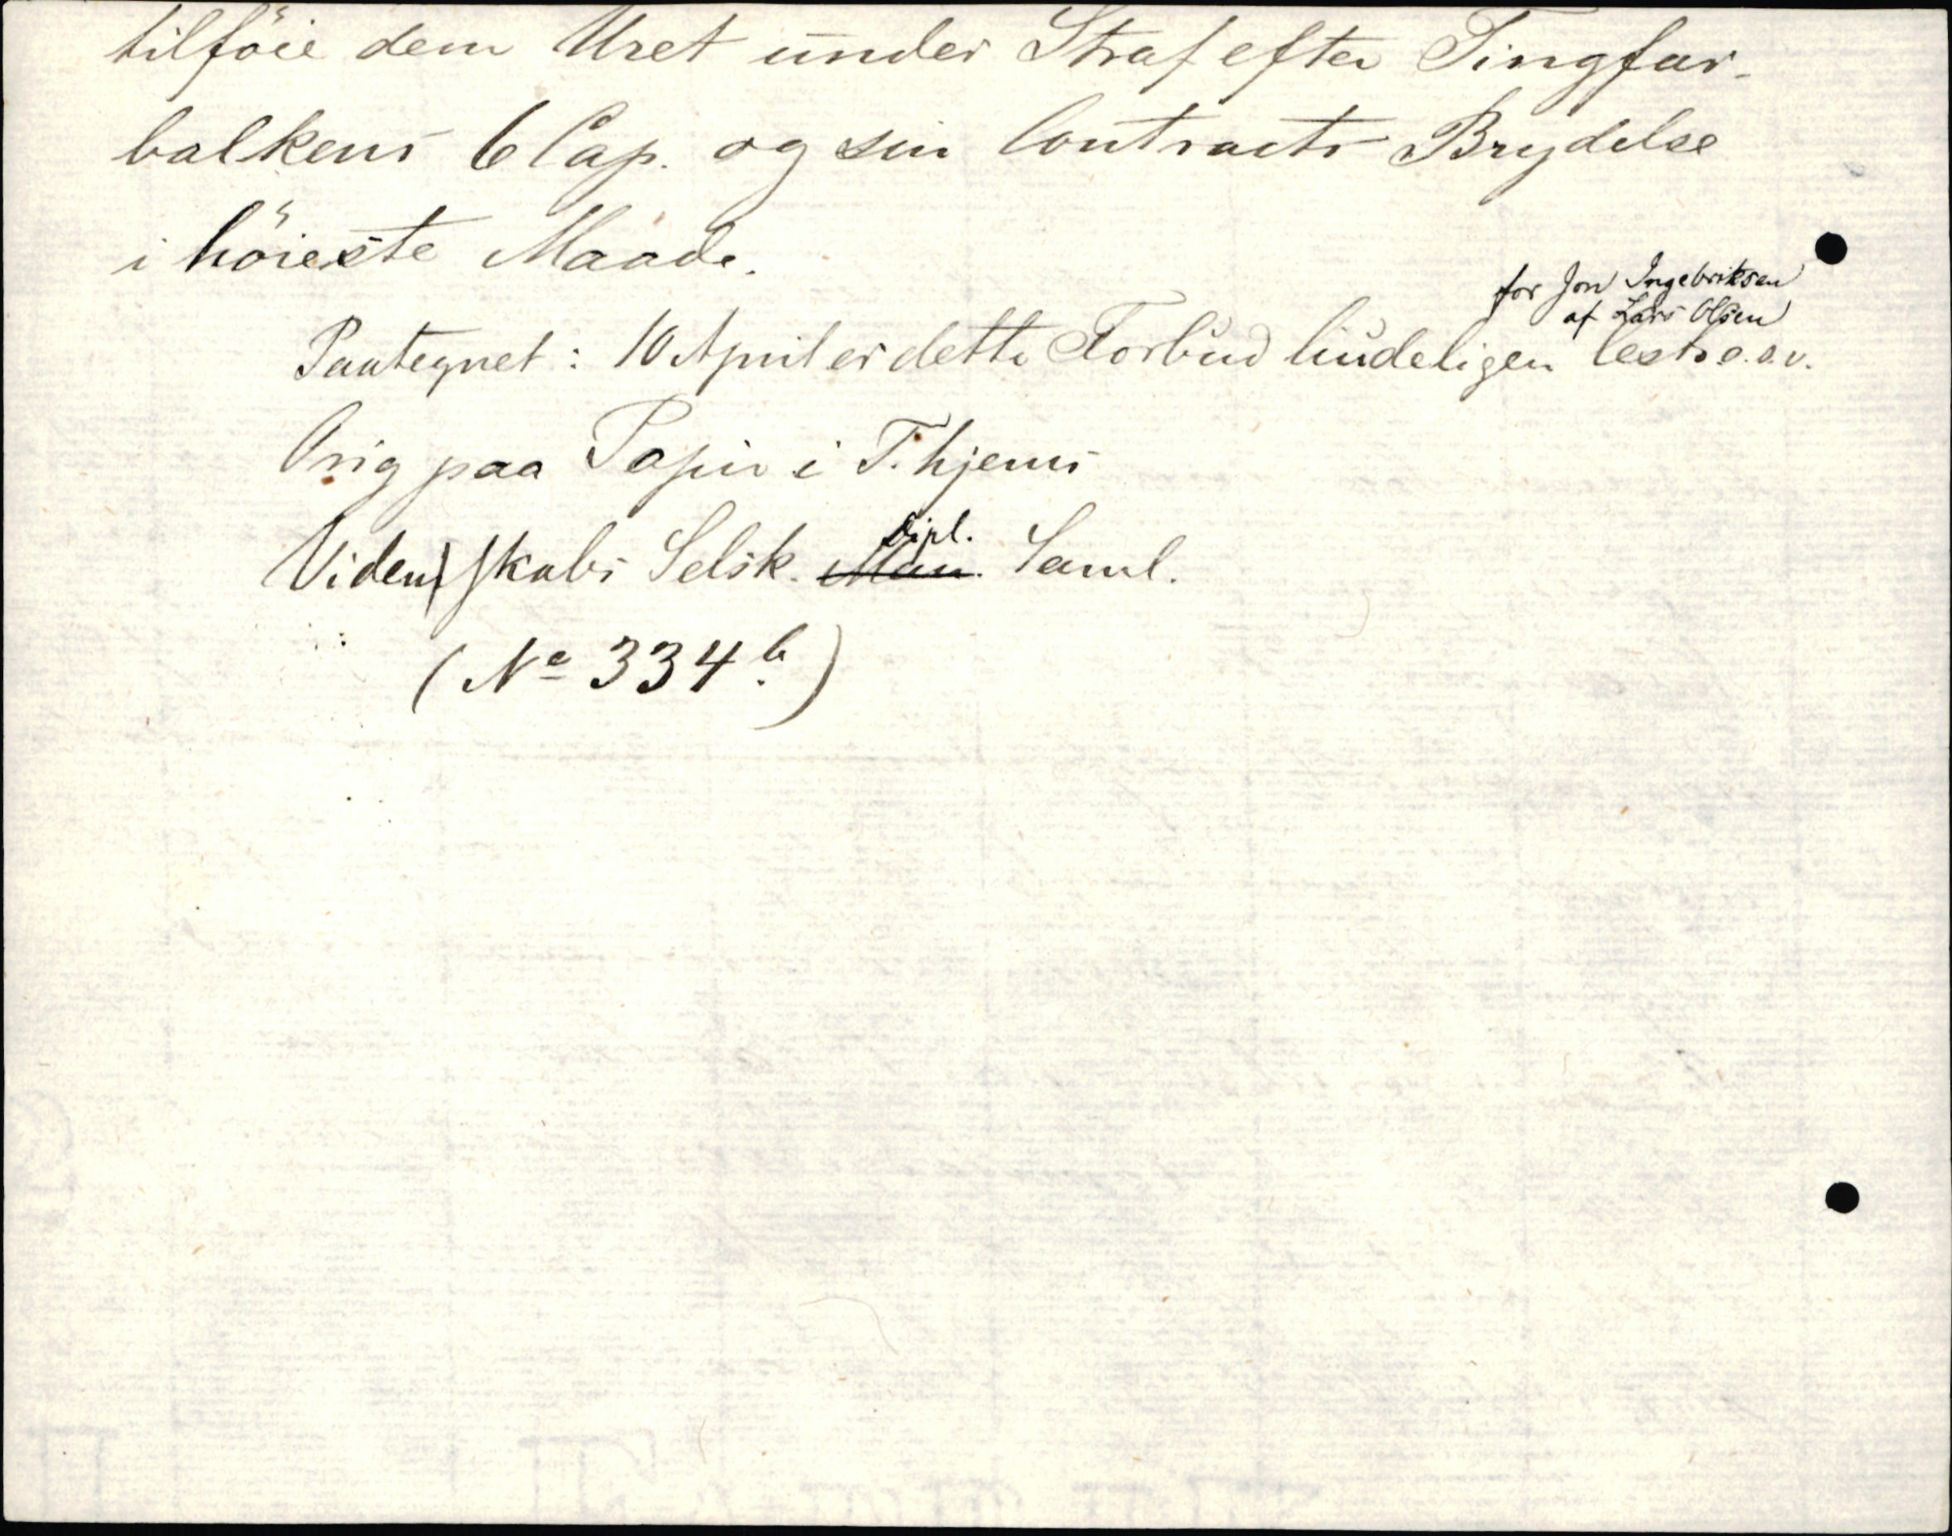 tilföie dem Uret under Straf efter Tingfar-
balkens 6 Cap. og sin Contracts Brydelse
i höieste Maade.
for Jon Ingebriksen
af Lars Olsen
Paategnet: 10 April er dette Forbud liudeligen lest o.s.v.
Orig paa Papir i T.hjems
Videnskabs Selsk. Man. Dipl. Saml.
(No 334 b.)